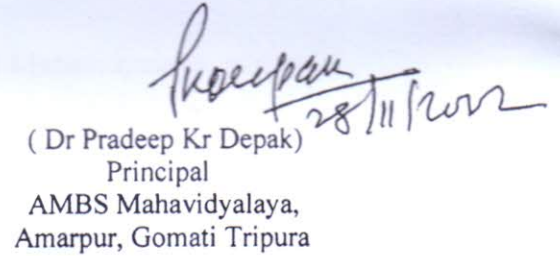 28/11/2022
( Dr Pradeep Kr Depak)
Principal
AMBS Mahavidyalaya,
Amarpur, Gomati Tripura